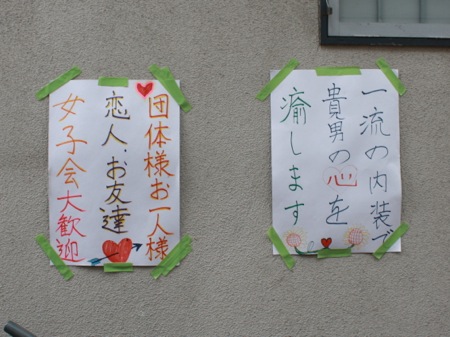 一流の内装で
貴男の心を
瘉します
団体様・お一人様
恋人・お友達
女子会大歓迎